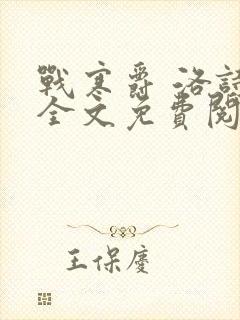 戰寒爵 洛詩
全文免費閱
王保慶